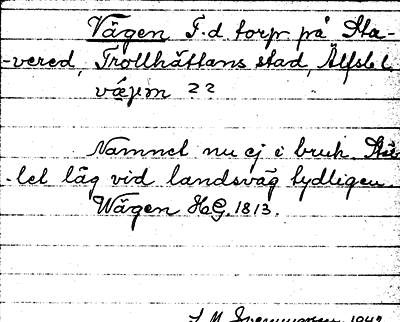 Vägen F.d. torp på Sta-
-vered, Trollhättans stad, Älfsb. l.
vä́jəm ??
Namnet nu ej i bruk. Stäl-
-let låg vid landsväg tydligen.
Wägen HG. 1813.